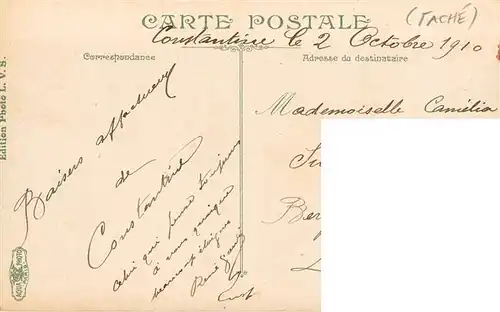 CARTE POSTALE
(TACHÉ)
Constantine le 2 Octobre 1910
Correspondance
Adresse du destinataire
Edition Photo L. V. S.
Mademoiselle Camélia
Baisers affectueux
de
Constantine
celui qui pense toujours
à vous quoique
beaucoup éloigné
René
AQUA PHOTO